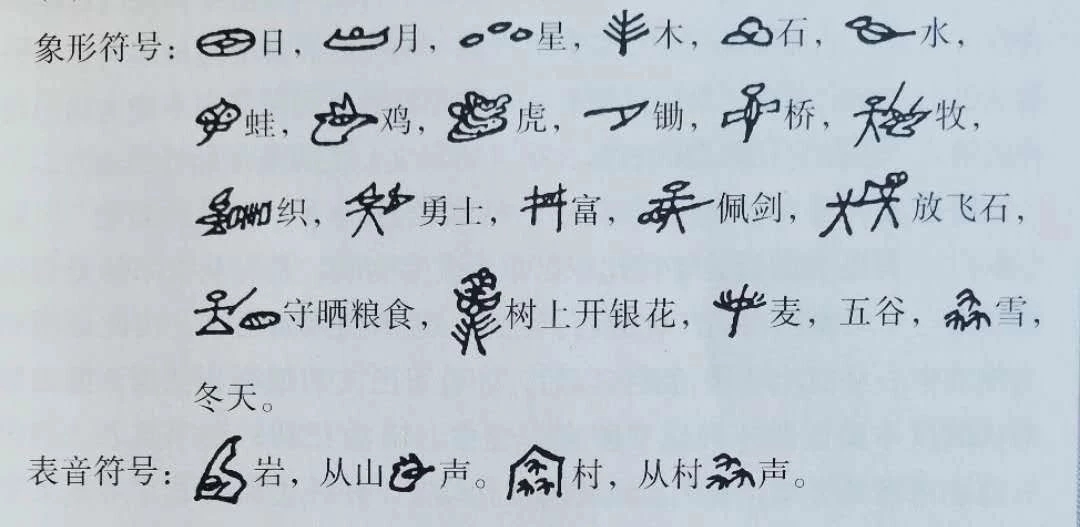 象形符号：日，月，星，木，石，水，
蛙，鸡，虎，锄，桥，牧，
织，勇士，富，佩剑，放飞石，
守晒粮食，树上开银花，麦，五谷，雪，
冬天。
表音符号：岩，从山声。村，从村声。